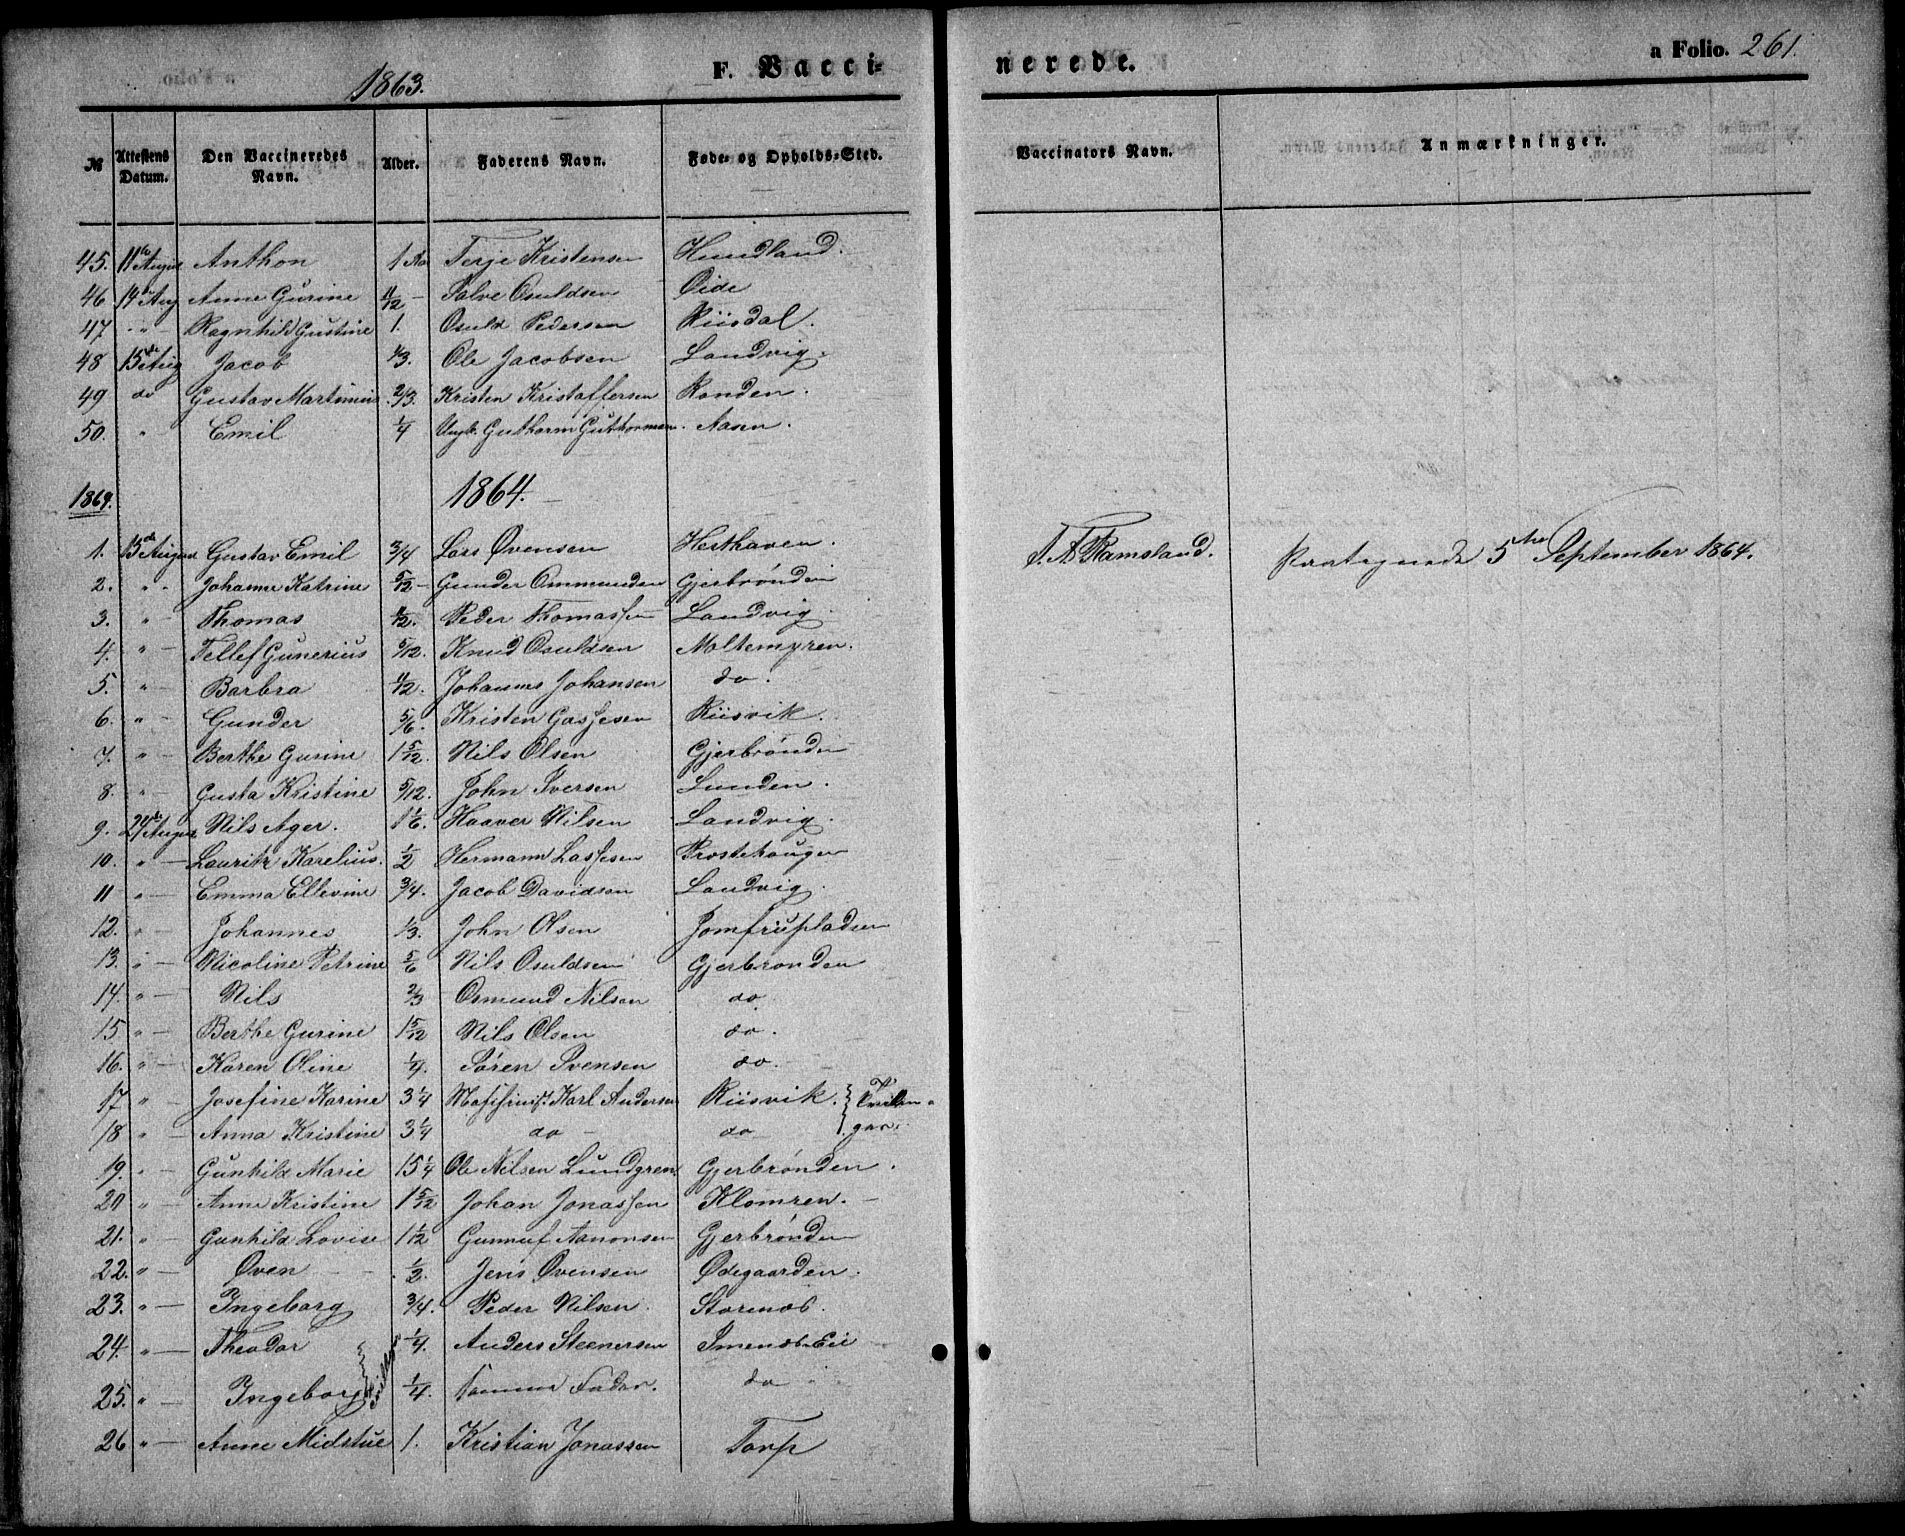 1863.
F. Vacci-
nerede.
a Folio. 261.
№ Attestens Datum. Den Vaccineredes Navn. Alder. Faderens Navn. Føde- og Opholds-Sted. Vaccinators Navn. Anmærkninger.
45. 11te August Anthon 1 Aar Terje Kristensen Hundland.
46 14de Aug Anne Gurine 11/12 - Salve Osuldsen Eide
47 " Ragnhild Gustine 1. Osuld Pedersen Riisdal.
48 15de Aug Jacob 1/3. Ole Jacobsen Landvig.
49 do Gustav Martinius 2/3. Kristen Kristoffersen Ronden.
50. " Emil 1/4 Ungk. Guthorm Guthormsen. Aasen.
1864. 1864.
1. 15de August Gustav Emil 3/4 Lars Øvensen Hesthaven. T. A. Ramsland. Paategnede 5te September 1864.
2. " Johanne Katrine 5/12 - Gunder Ommundsen Gjerbrønden
3. " Thomas Peder Thomassen Landvig.
4. " Tellef Gunerius 5/12. Knud Osuldsen Moltemyren.
5. " Barbra Johannes Johansen do.
6. " Gunder 5/6. Kristen Gassesen Riisvik.
7. " Berthe Gurine 1 5/12. Nils Olsen Gjerbrønden
8. " Gusta Kristine 5/12. John Iversen Lunden.
9. 24de August Nils Ager. 1 1/6. Haaver Nilsen Landvig.
10. " Lauritz Karelius. 1/2 Hermann Lassesen Prostehougen
11 " Emma Ellevine 3/4. Jacob Davidsen Landvig.
12. " Johannes 1/3. John Olsen Jomfrupladsen
13. " Nicoline Petrine 5/6 Nils Osuldsen Gjerbrønden
14. " Nils 2/3 Osmund Nilsen do
15 " Berthe Gurine 1 5/12 Nils Olsen do.
16. " Karen Oline 1/4. Søren Svensen do.
17 " Josefine Karine 3 1/4 Karl Andersen Riisvik. } Tvillin-
18 " Anna Kristine 3 1/4 do do } ger.
19. " Gunhild Marie 15 1/4 Ole Nilsen Lundgren. Gjerbrønden.
20 " Anne Kristine 1 5/12 Johan Jonassen Klomren.
21. " Gunhild Lovise 1 1/2 Gunnuf Aanonsen Gjerbrønden
22. " Øven 1/2. Jens Øvensen Ødegaarden.
23. " Ingeborg 3/4. Peder Nilsen. Storenæs.
24. " Theodor } Tvillinger 1/4. Anders Steenersen Smenæs-Eie
25. " Ingeborg 1/4. Samme Fader. do
26 " Anne Midstue 1. Kristian Jonassen Torp